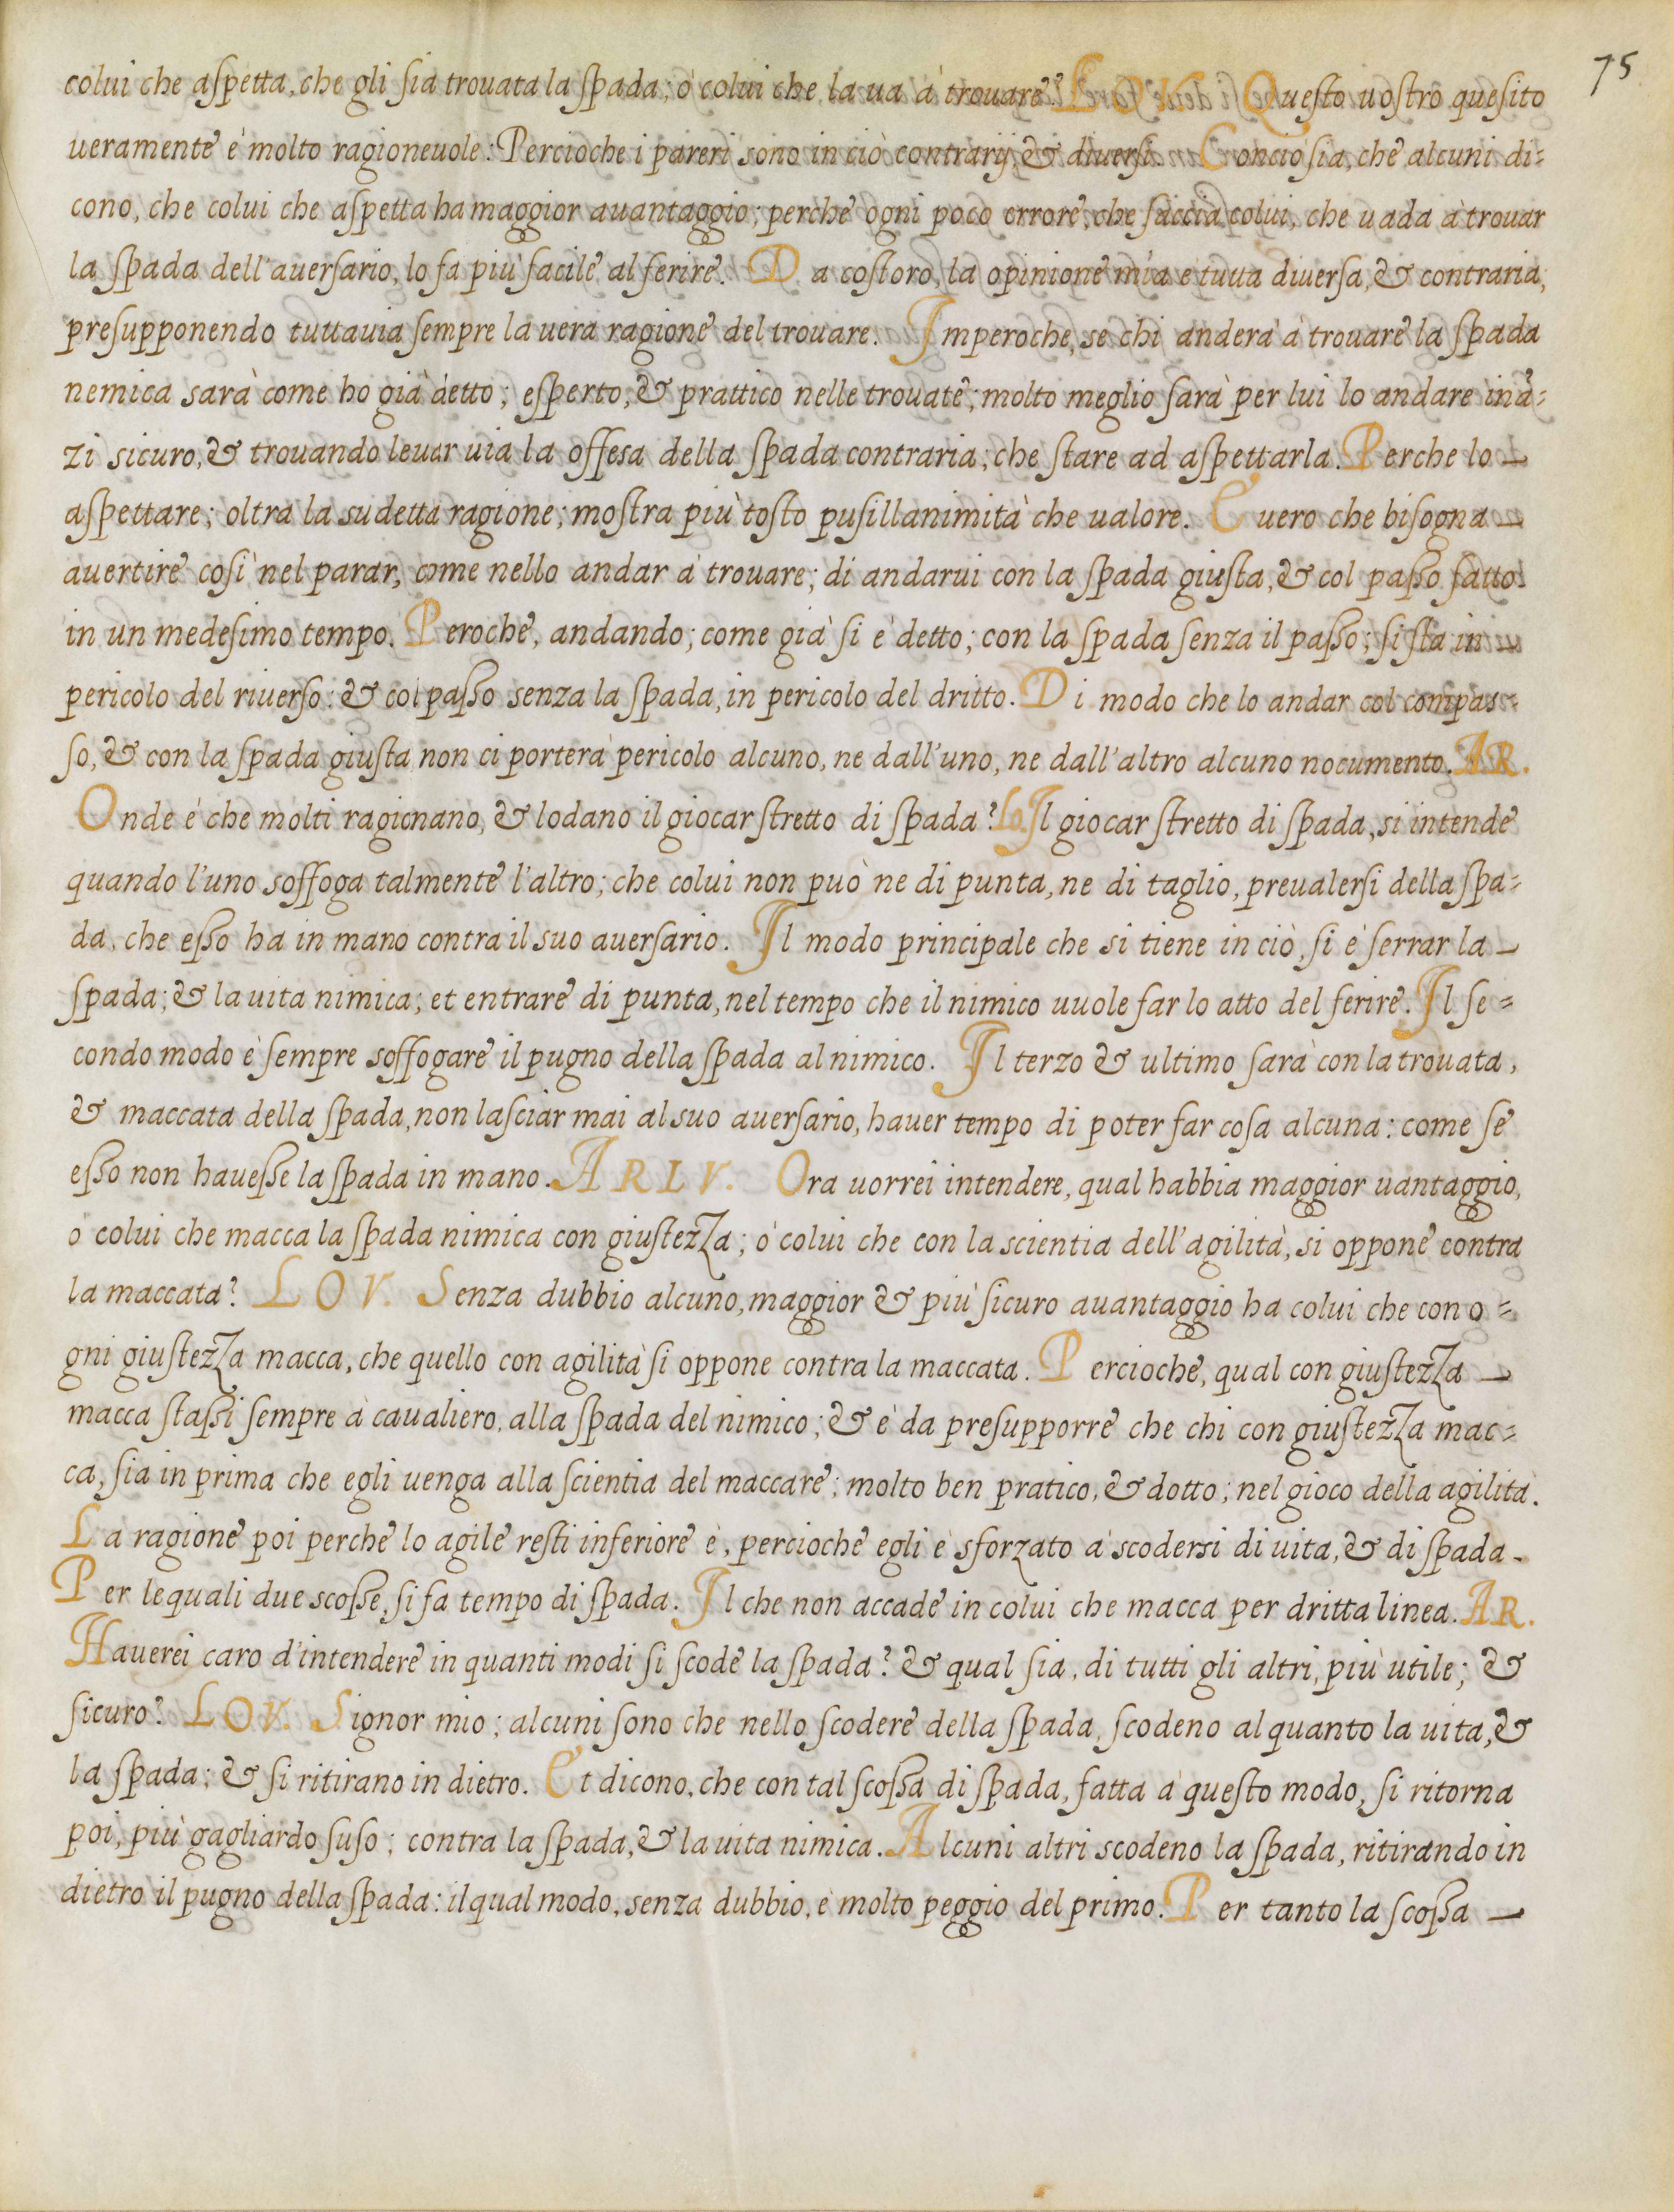 75
colui che aspetta, che gli sia trouata la spada; ò colui che la ua à trouare? LOV. Questo uostro quesito
ueramente è molto ragioneuole: Percioche i pareri sono in ciò contrarij, & diuersi. Conciosia, che alcuni di=
cono, che colui che aspetta ha maggior auantaggio; perche ogni poco errore, che faccia colui, che uada à trouar
la spada dell'auersario, lo fa più facile al ferire. Da costoro, la opinione mia è tutta diuersa, & contraria,
presupponendo tuttauia sempre la uera ragione del trouare. Imperoche, se chi anderà à trouare la spada
nemica sarà come ho già detto; esperto, & prattico nelle trouate; molto meglio sarà per lui lo andare inã=
zi sicuro, & trouando leuar uia la offesa della spada contraria; che stare ad aspettarla. Perche lo
aspettare; oltra la sudetta ragione; mostra più tosto pusillanimità che ualore. E uero che bisogna
auertire così nel parar, come nello andar à trouare; di andarui con la spada giusta, & col passo fatto
in un medesimo tempo. Peroche, andando; come già si è detto; con la spada senza il passo; si sta in
pericolo del riuerso: & col passo senza la spada, in pericolo del dritto. Di modo che lo andar col compas=
so, & con la spada giusta non ci porterà pericolo alcuno, ne dall'uno, ne dall'altro alcuno nocumento. AR.
Onde è che molti ragionano, & lodano il giocar stretto di spada? Lo. Il giocar stretto di spada, si intende
quando l'uno soffoga talmente l'altro; che colui non può ne di punta, ne di taglio, preualersi della spa=
da, che esso ha in mano contra il suo auersario. Il modo principale che si tiene in ciò, si è serrar la
spada; & la uita nimica; et entrare di punta, nel tempo che il nimico uuole far lo atto del ferire. Il se=
condo modo è sempre soffogare il pugno della spada al nimico. Il terzo & ultimo sarà con la trouata,
& maccata della spada, non lasciar mai al suo auersario, hauer tempo di poter far cosa alcuna: come se
esso non hauesse la spada in mano. ARLV. Ora uorrei intendere, qual habbia maggior uantaggio,
ò colui che macca la spada nimica con giustezza; ò colui che con la scientia dell'agilità, si oppone contra
la maccata? LOV. Senza dubbio alcuno, maggior & più sicuro auantaggio ha colui che con o=
gni giustezza macca, che quello con agilità si oppone contra la maccata. Percioche, qual con giustezza
macca stassi sempre à caualiero, alla spada del nimico; & è da presupporre che chi con giustezza mac=
ca, sia in prima che egli uenga alla scientia del maccare; molto ben pratico, & dotto; nel gioco della agilità.
La ragione poi perche lo agile resti inferiore è, percioche egli è sforzato à scodersi di uita, & di spada.
Per lequali due scosse, si fa tempo di spada. Il che non accade in colui che macca per dritta linea. AR.
Hauerei caro d'intendere in quanti modi si scode la spada? & qual sia, di tutti gli altri, più utile; &
sicuro? LOV. Signor mio; alcuni sono che nello scodere della spada, scodeno alquanto la uita, &
la spada; & si ritirano in dietro. Et dicono, che con tal scossa di spada, fatta à questo modo, si ritorna
poi, più gagliardo suso; contra la spada, & la uita nimica. Alcuni altri scodeno la spada, ritirando in
dietro il pugno della spada: il qual modo, senza dubbio, è molto peggio del primo. Per tanto la scossa